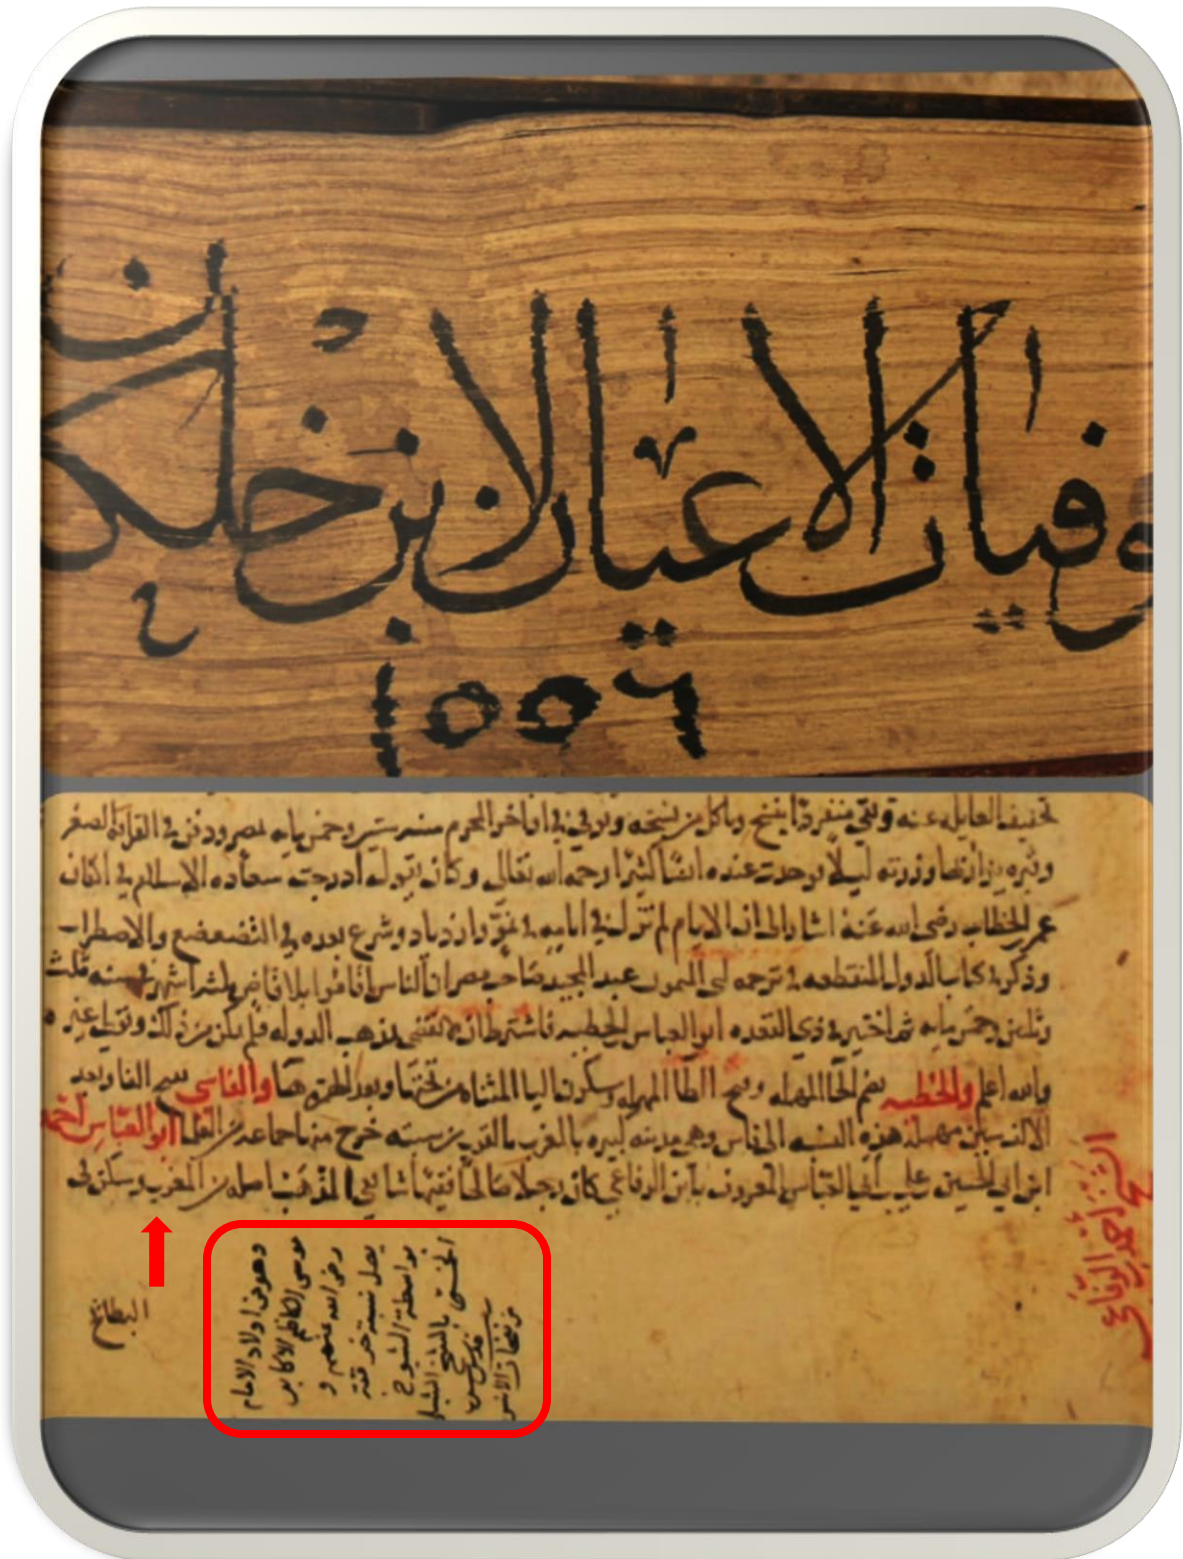 وفيات الاعيان لابن خلكان
١٥٥٦
تخفيف العايله عنه وبقي منفردا ينسخ وياكل من نسخه وتوفي في اواخر المحرم سنه ستين وخمس مايه بمصر ودفن في القرافه الصغرى
وقبره يزار بها وزرته ليلا فوجدت عنده انسا كثيرا رحمه الله تعالى وكان يقول ادرجت سعاده الاسلام في اكفان
عمر بن الخطاب رضي الله عنه اشار الى انه الاسلام لم تزل في ايامه في نمو وازدياد وشرع بعده في التضعضع والاضطراب
وذكر في كتاب الدول المنقطعه في ترجمه ابي الميمون عبد المجيد صاحب مصر ان الناس اقاموا بلا قاض ثلثه اشهر في سنه ثلث
وثلثين وخمس مايه ثم اختير في ذي القعده ابو العباس بن الحطيه فاشترط ان لا يقضي بمذهب الدوله فلم يمكن من ذلك وتولى غيره
والله اعلم والحطيه بضم الحا المهمله وفتح الطا المهمله وسكون اليا المثناه من تحتها وبعد الهمزه ها والفاسي بفتح الفا وبعد
الالف سين مهمله هذه النسبه الى فاس وهي مدينه كبيره بالمغرب بالقرب من سبته خرج منها جماعه من العلما ابو العباس احمد
ابن ابي الحسين علي بن ابي العباس المعروف بابن الرفاعي كان رجلا صالحا فقيها شافعي المذهب اصله من المغرب وسكن في
الشيخ أحمد الرفاعي
البطائح
وهو من اولاد الامام
موسى الكاظم الاكابر
رضي الله عنهم و
يصل نسبة خرقته
بواسطة الشيوخ
الخمس بالشيخ الشبلي
قدس سره
من نفحات الانس